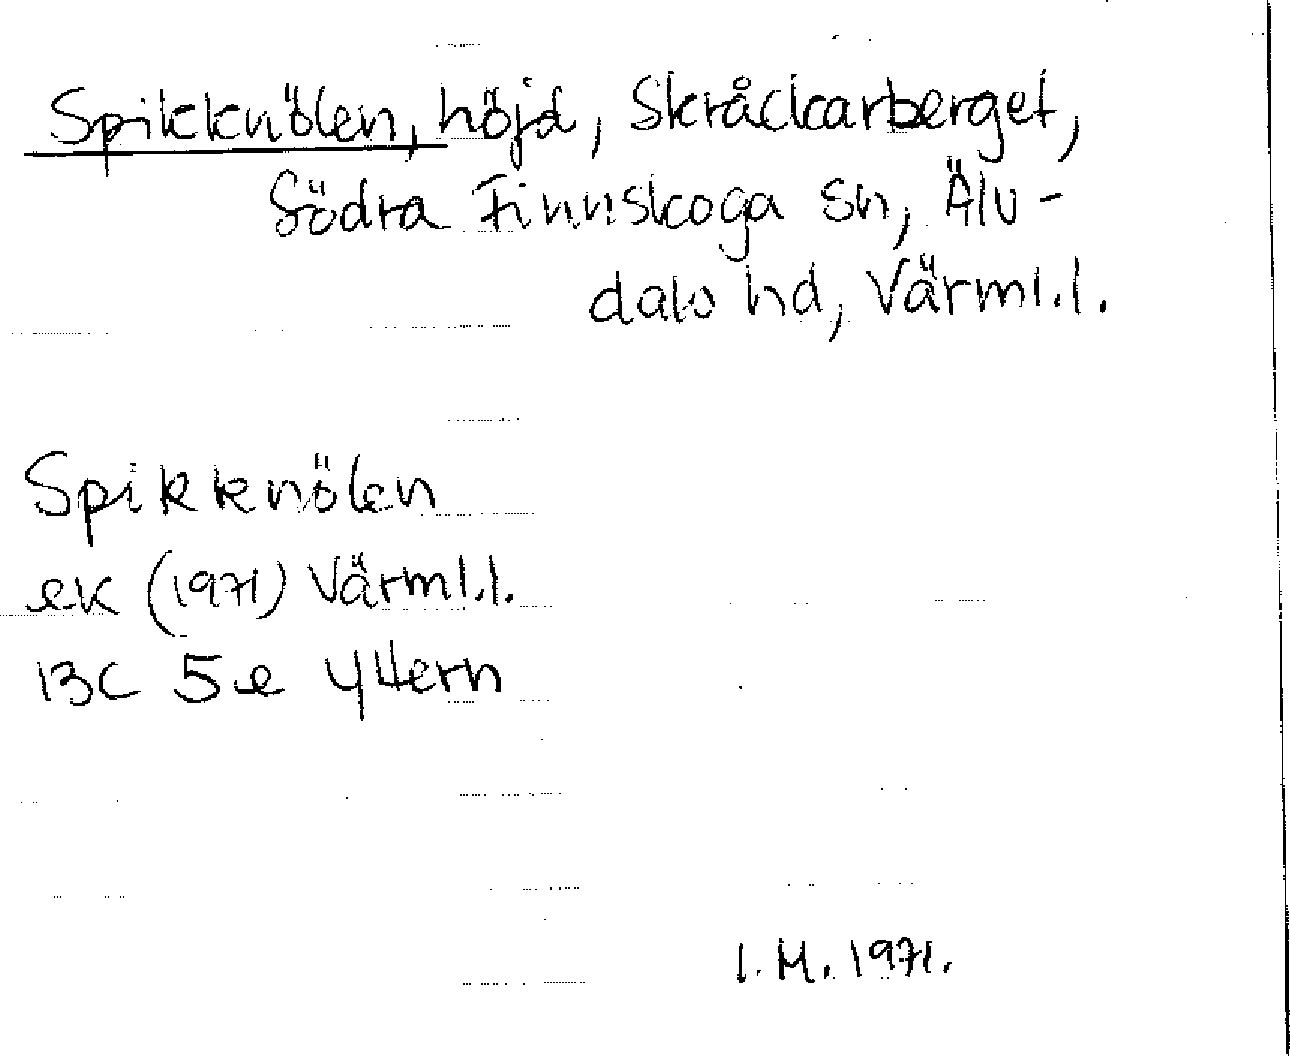 Spikknölen, höjd, Skråckarberget,
Södra Finnskoga sn, Älv-
dals hd, Värml.l.
Spikknölen
ek (1971) Värml.l.
13C 5e Yttern
I. M. 1971.